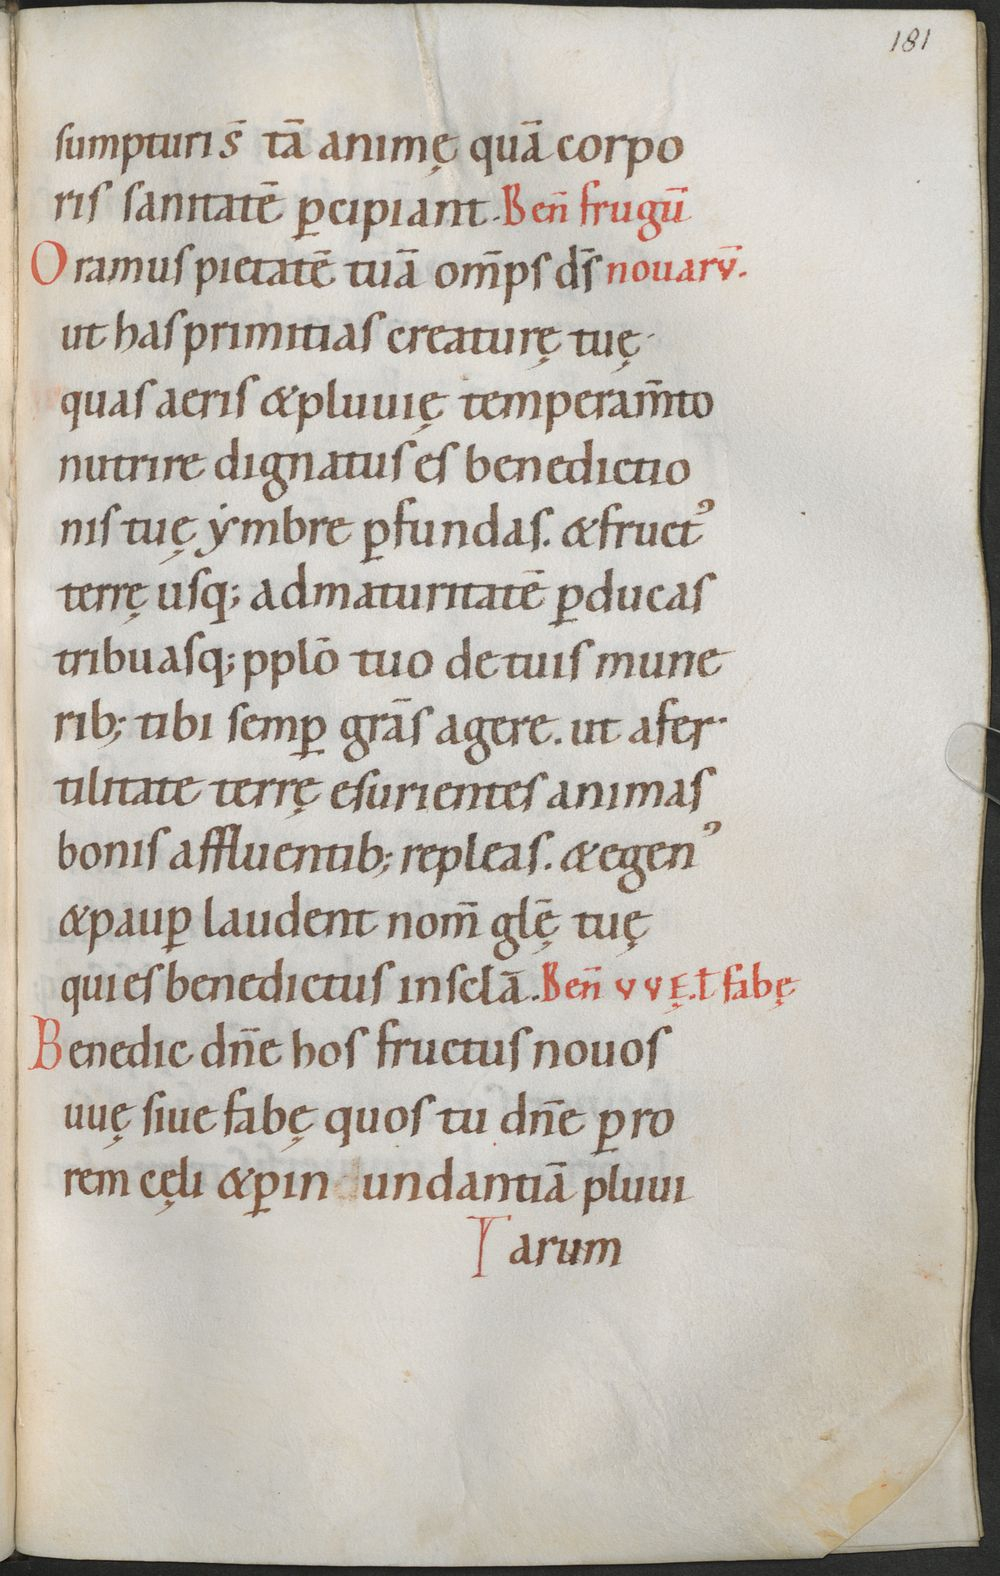 181
sumpturi s̄ tā animę quā corpo
ris sanitatē ꝑcipiant. Ben̄ frugū
Oramus pietatē tuā om̄ps ds̄ nouarv̄.
ut has primitias creaturę tuę·
quas aeris & pluuię temperam̄to
nutrire dignatus es benedictio
nis tuę ẏmbre ꝑfundas. & fruct᾿
terrę usq; ad maturitatē ꝑducas
tribuasq; pplō tuo de tuis mune
rib; tibi semꝑ grās agere. ut a fer·
tilitate terrę esurientes animas
bonis affluentib; repleas. & egen᾿
& pauꝑ laudent nom̄ glę̄ tuę
qui es benedictus in sclā. Ben̄ vvę. ł fabę
Benedic dn̄e hos fructus nouos
uuę siue fabę quos tu dn̄e ꝑ ro
rem cęli & ꝑ in undantiā pluui
T arum